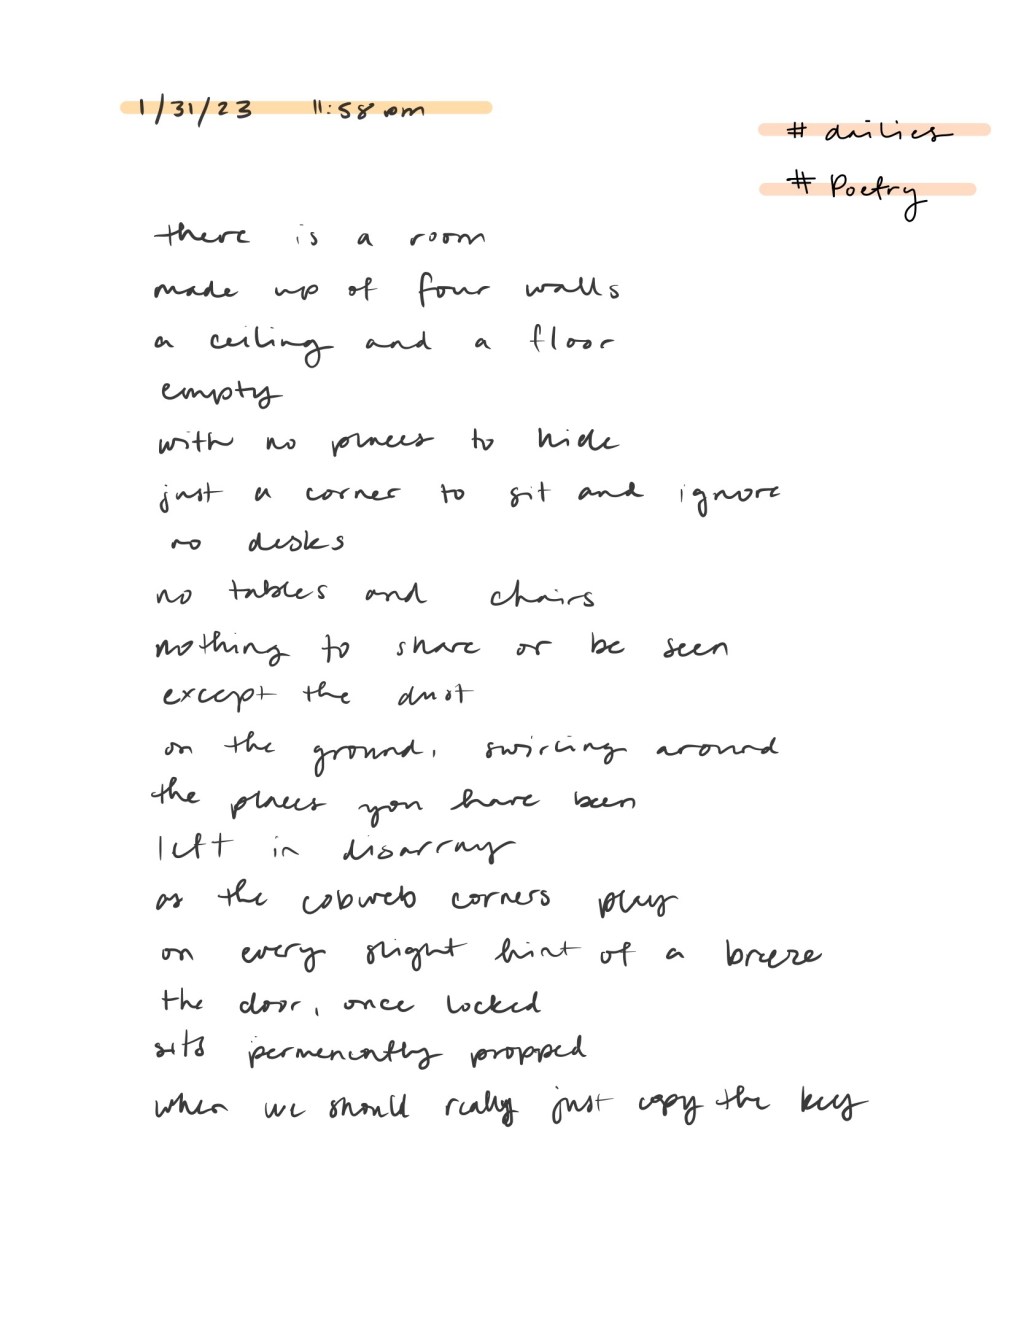 1/31/23 11:58 am
# dailies
# Poetry
there is a room
made up of four walls
a ceiling and a floor
empty
with no places to hide
just a corner to sit and ignore
no desks
no tables and chairs
nothing to share or be seen
except the dust
on the ground, swirling around
the places you have been
left in disarray
as the cobweb corners play
on every slight hint of a breeze
the door, once locked
sits permenently propped
when we should really just copy the key